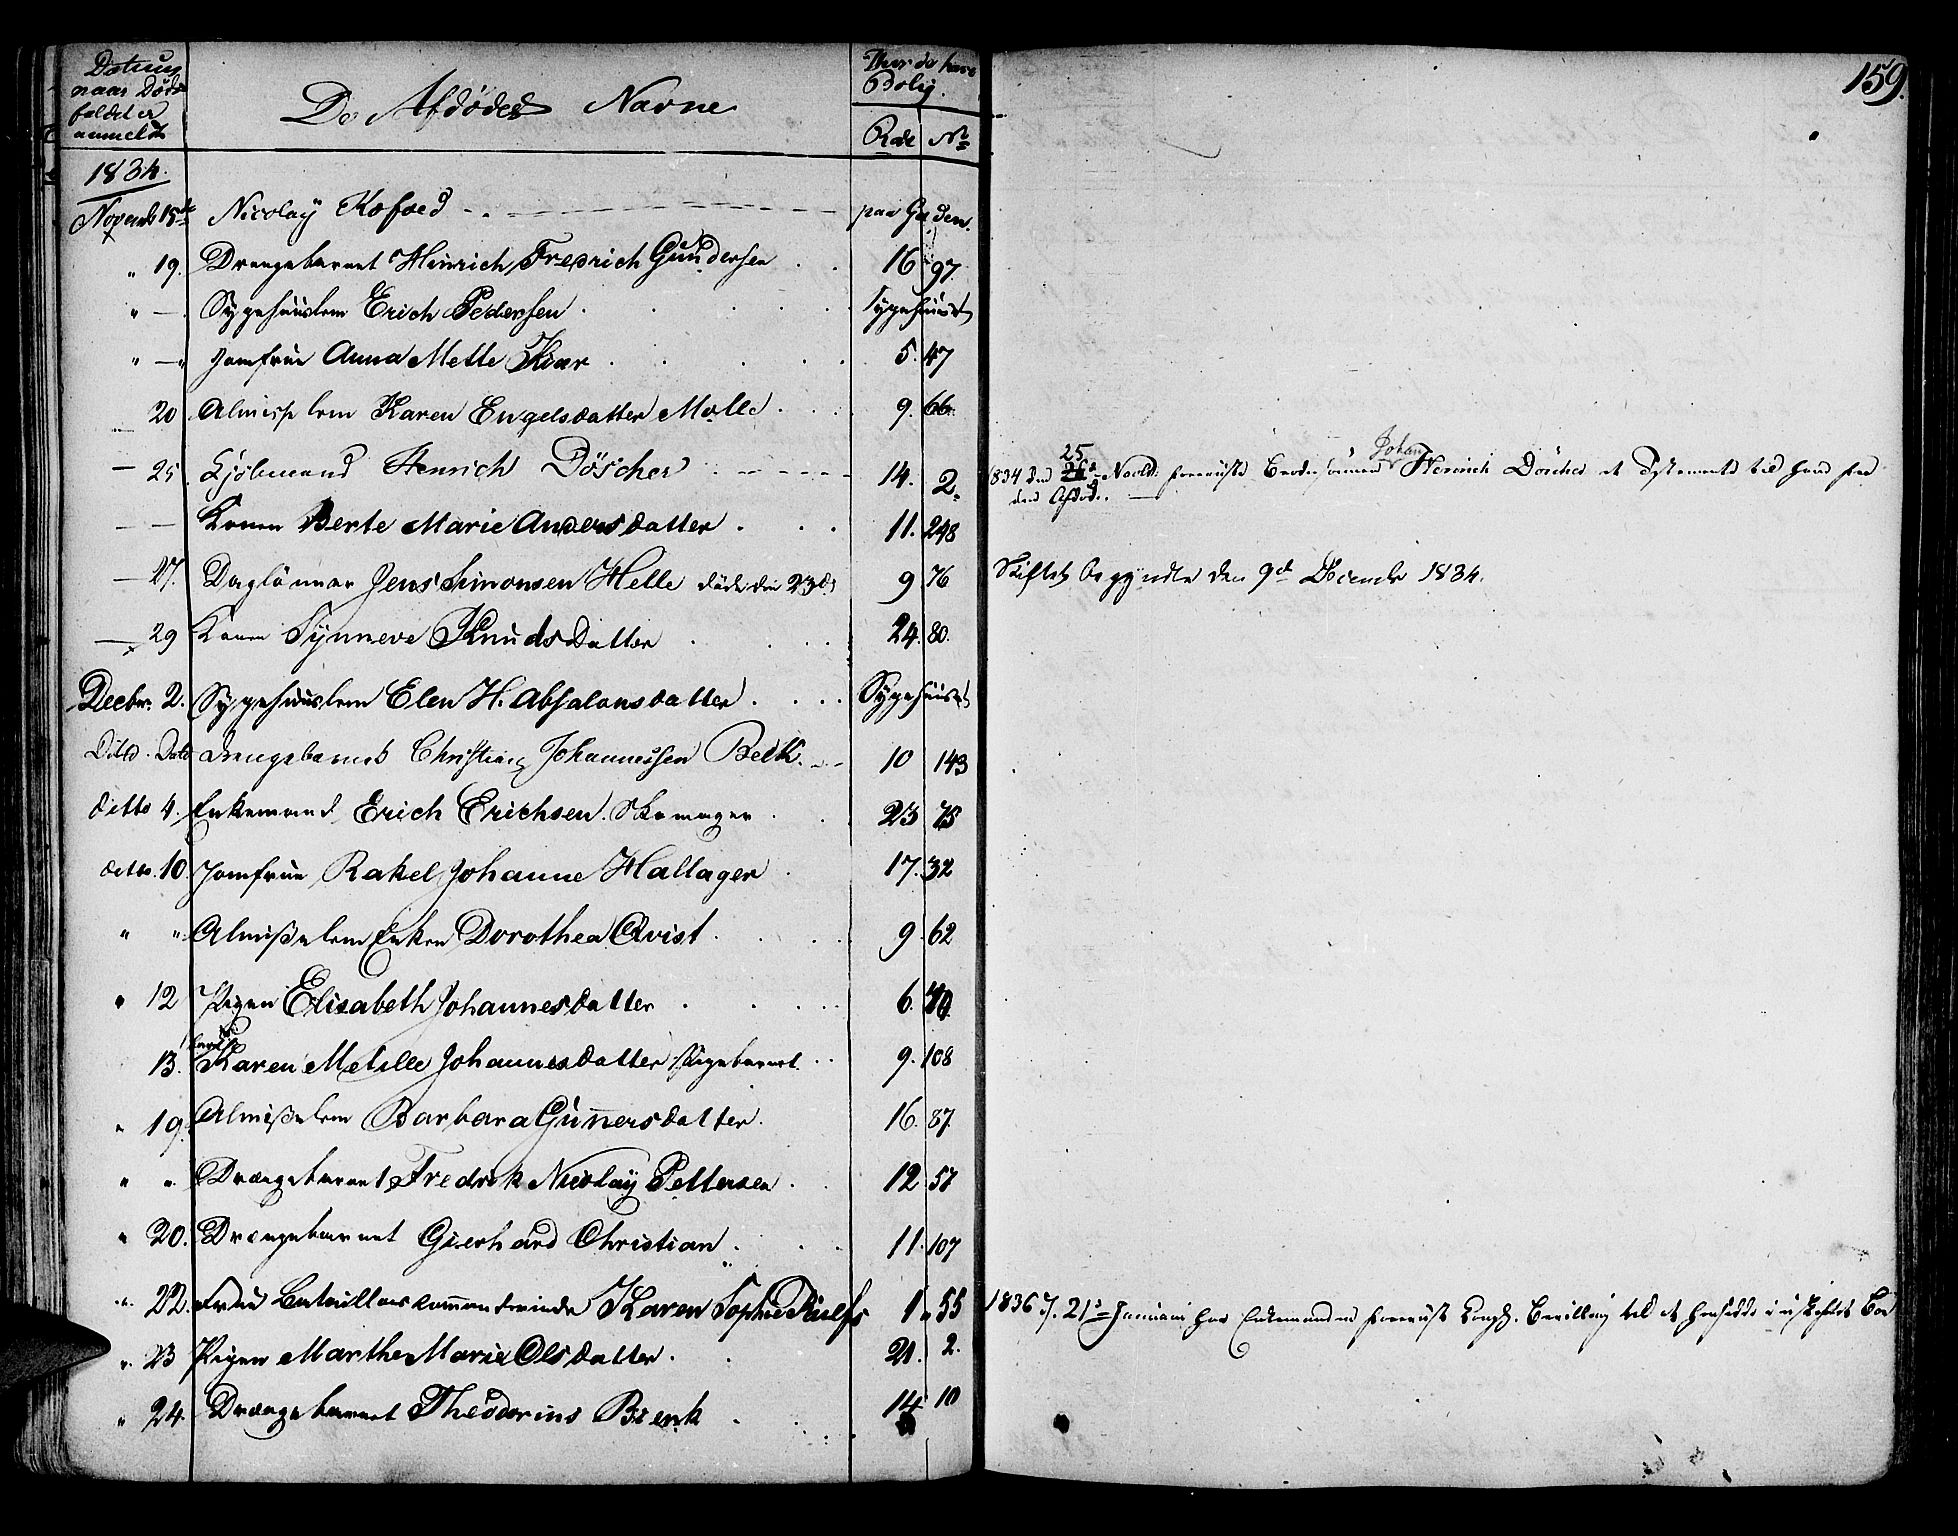 159.
Datum naar Døds faldet er anmeldt
De Afdødes Navne
Hvor de have Bolig.
Rode No
1834.
Novemb 15de Nicolaÿ Kofoed paa Gaden.
" 19. Drengebarnet Hinrich Fredrich Gundersen 16 97.
" — Sygehuuslem Erich Pedersen Sygehuuset
" — " Jomfrue Anna Mette Kiær 5. 47
20 Almisselem Karen Engelsdatter Molle 9. 66.
— 25. Kjøbmand Henrich Döscher 14. 2.
1834 den 25 Novbr: foreviiste Johan Henrich Döscher et Testamente
den Afdøde.
— — Konen Berte Marie Andersdatter 11. 248
— 27. Daglönner Jens Simonsen Helle døde den 23de 9 76
Skiftet begyndte den 9de December 1834.
— 29 Konen Synneve Knudsdatter 24. 80.
Decbr. 2. Sygehuuslem Elen H. Absalonsdatter Sygehuuset
Ditto. Dato Drengebarnet Christian Johannessen Beck 10 143
ditto 4. Enkemand Erich Erichsen Skomager 23 75
ditto. 10. Jomfrue Rakel Johanne Hallager 17. 32
" " Almisselem Enken Dorothea Qvist 9. 62
" 12 Pigen Elisabeth Johannesdatter 6.
13. Karen Metille Johannesdatter Pigebarnet 9. 108
" 19. Almisselem Barbara Gunnersdatter. 16. 87.
" " Drængebarnet Fredrik Nicolaÿ Pettersen 12 57
" 20. Drængebarnet Gierhard Christian 11. 107
" 22. Frue Bataillonscommandeurinde Karen Sophie 1. 55
1836 d. 21de Januari har Enkemanden foreviist Kongl. Bevilling til at hensidde i uskiftet Boe
" 23 Pigen Marthe Marie Olsdatter 21. 2.
" 24. Drængebarnet Theodorius Bierk 14 10